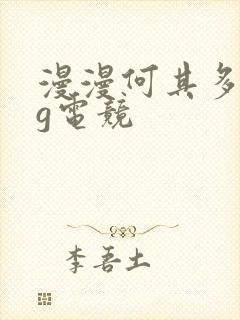 漫漫何其多
g電競
李吾土